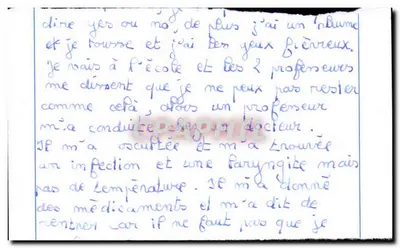 dire yes ou no, de plus j'ai un rhume
et je tousse et j'ai les yeux fièvreux.
Je vais à l'école et les 2 professeurs
me dissent que je ne peux pas rester
comme celà, alors un professeur
m'a conduite docteur.
Il m'a oscultée et m'a trouvée
un infection et une laryngite mais
pas de température. Il m'a donné
des médicaments et m'a dit de
rentrer car il ne faut pas que je